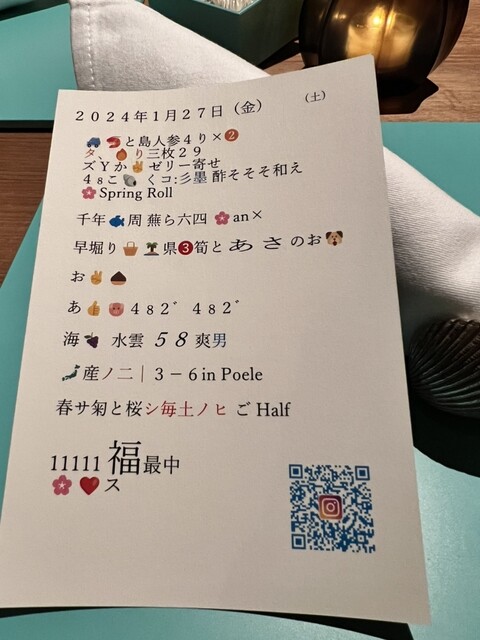 2024年1月27日（金） （土）
🚙🦐と島人参4り×❷
タ、🔥り三枚29
ズYか✌ゼリー寄せ
48こ🐚くコ:彡墨 酢そそそ和え
🌸Spring Roll
千年🐟周 蕪ら六四 🌸an×
早堀り🧺🏝県❸筍と あ さ のお🐶
お✌🌰
あ👍🐷482゛482゛
海🍇 水雲 58 爽男
🗾産ノ二| 3-6in Poele
春サ菊と桜シ毎土ノヒ ご Half
11111 福最中
🌸❤ス